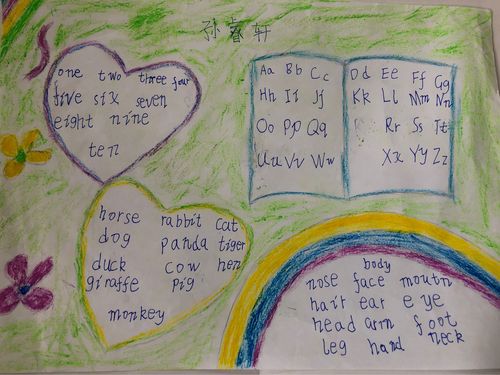 孙睿轩
one two three four
five six seven
eight nine
ten
Aa Bb Cc
Hh Ii Jj
Oo Pp Qq
Uu Vv Ww
Dd Ee Ff Gg
Kk Ll Mm Nn
Rr Ss Tt
Xx Yy Zz
horse rabbit cat
dog panda tiger
duck cow hen
giraffe pig
monkey
body
nose face mouth
hair ear eye
head arm foot
leg hand neck